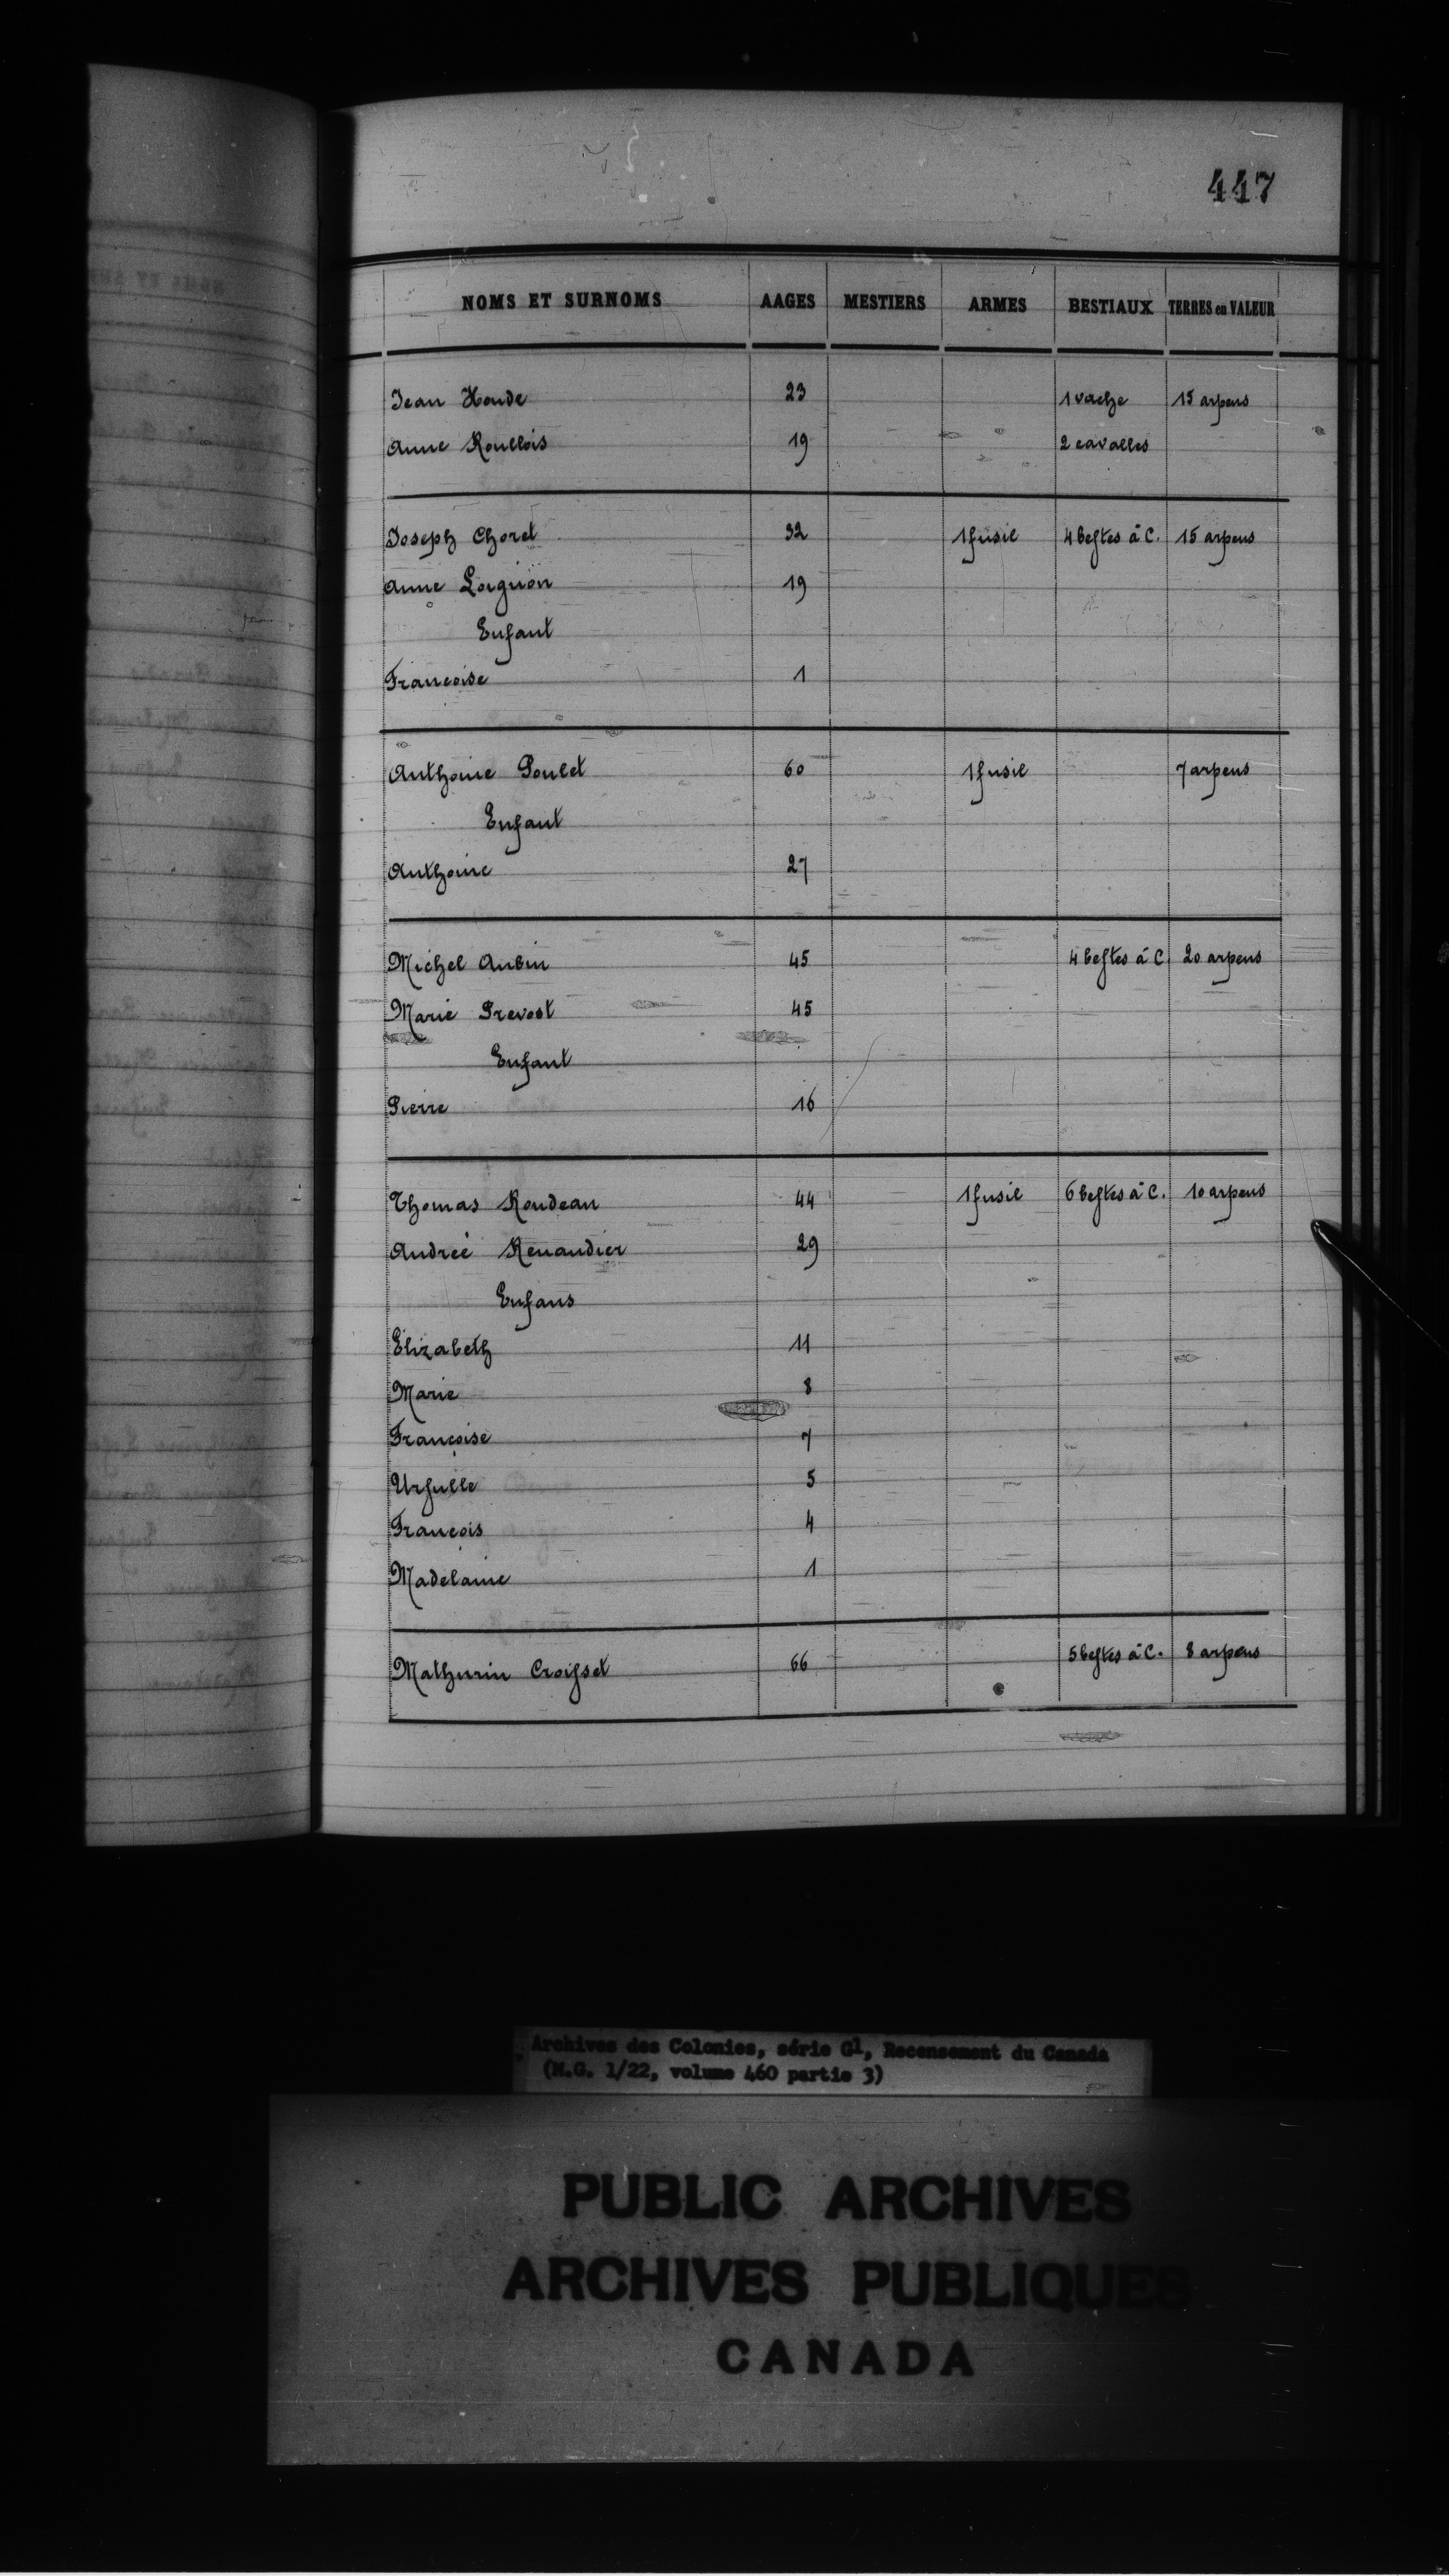 447
NOMS ET SURNOMS AAGES MESTIERS ARMES BESTIAUX TERRES en VALEUR
Jean Houde 23 1 vache 15 arpens
Anne Roullois 19 2 cavalles
Joseph Choret 32 1 fusil 4 bestes à C. 15 arpens
Anne Loignon 19
Enfant
Francoise 1
Anthoine Poulet 60 1 fusil 7 arpens
Enfant
Anthoine 27
Michel Aubin 45 4 bestes à C 20 arpens
Marie Prevost 45
Enfant
Pierre 16
Thomas Rondeau 44 1 fusil 6 bestes à C. 10 arpens
Andreé Renaudier 29
Enfans
Elizabeth 11
Marie 8
Françoise 7
Ursulle 5
François 4
Madelaine 1
Mathurin Croisset 66 5 bestes à C. 8 arpens
Archives des Colonies, série G1, Recensement du Canada
(M.G. 1/22, volume 460 partie 3)
PUBLIC ARCHIVES
ARCHIVES PUBLIQUES
CANADA